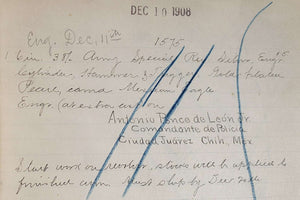 DEC 10 1908
Eng. Dec, 11th 1575
1 Cin. 38/ Army Special Rev. Silver, Eng'd
Cylinder, Hammer & Trigger Gold Plated
Pearl, carved Mexican Eagle
Engr. (at extra cost) on
Antonio Ponce de León Jr.
Comandante de Policia
Ciudad Juarez Chih, Mex
Start work on revolver, stocks will be applied to
finished arm. Must ship by Dec